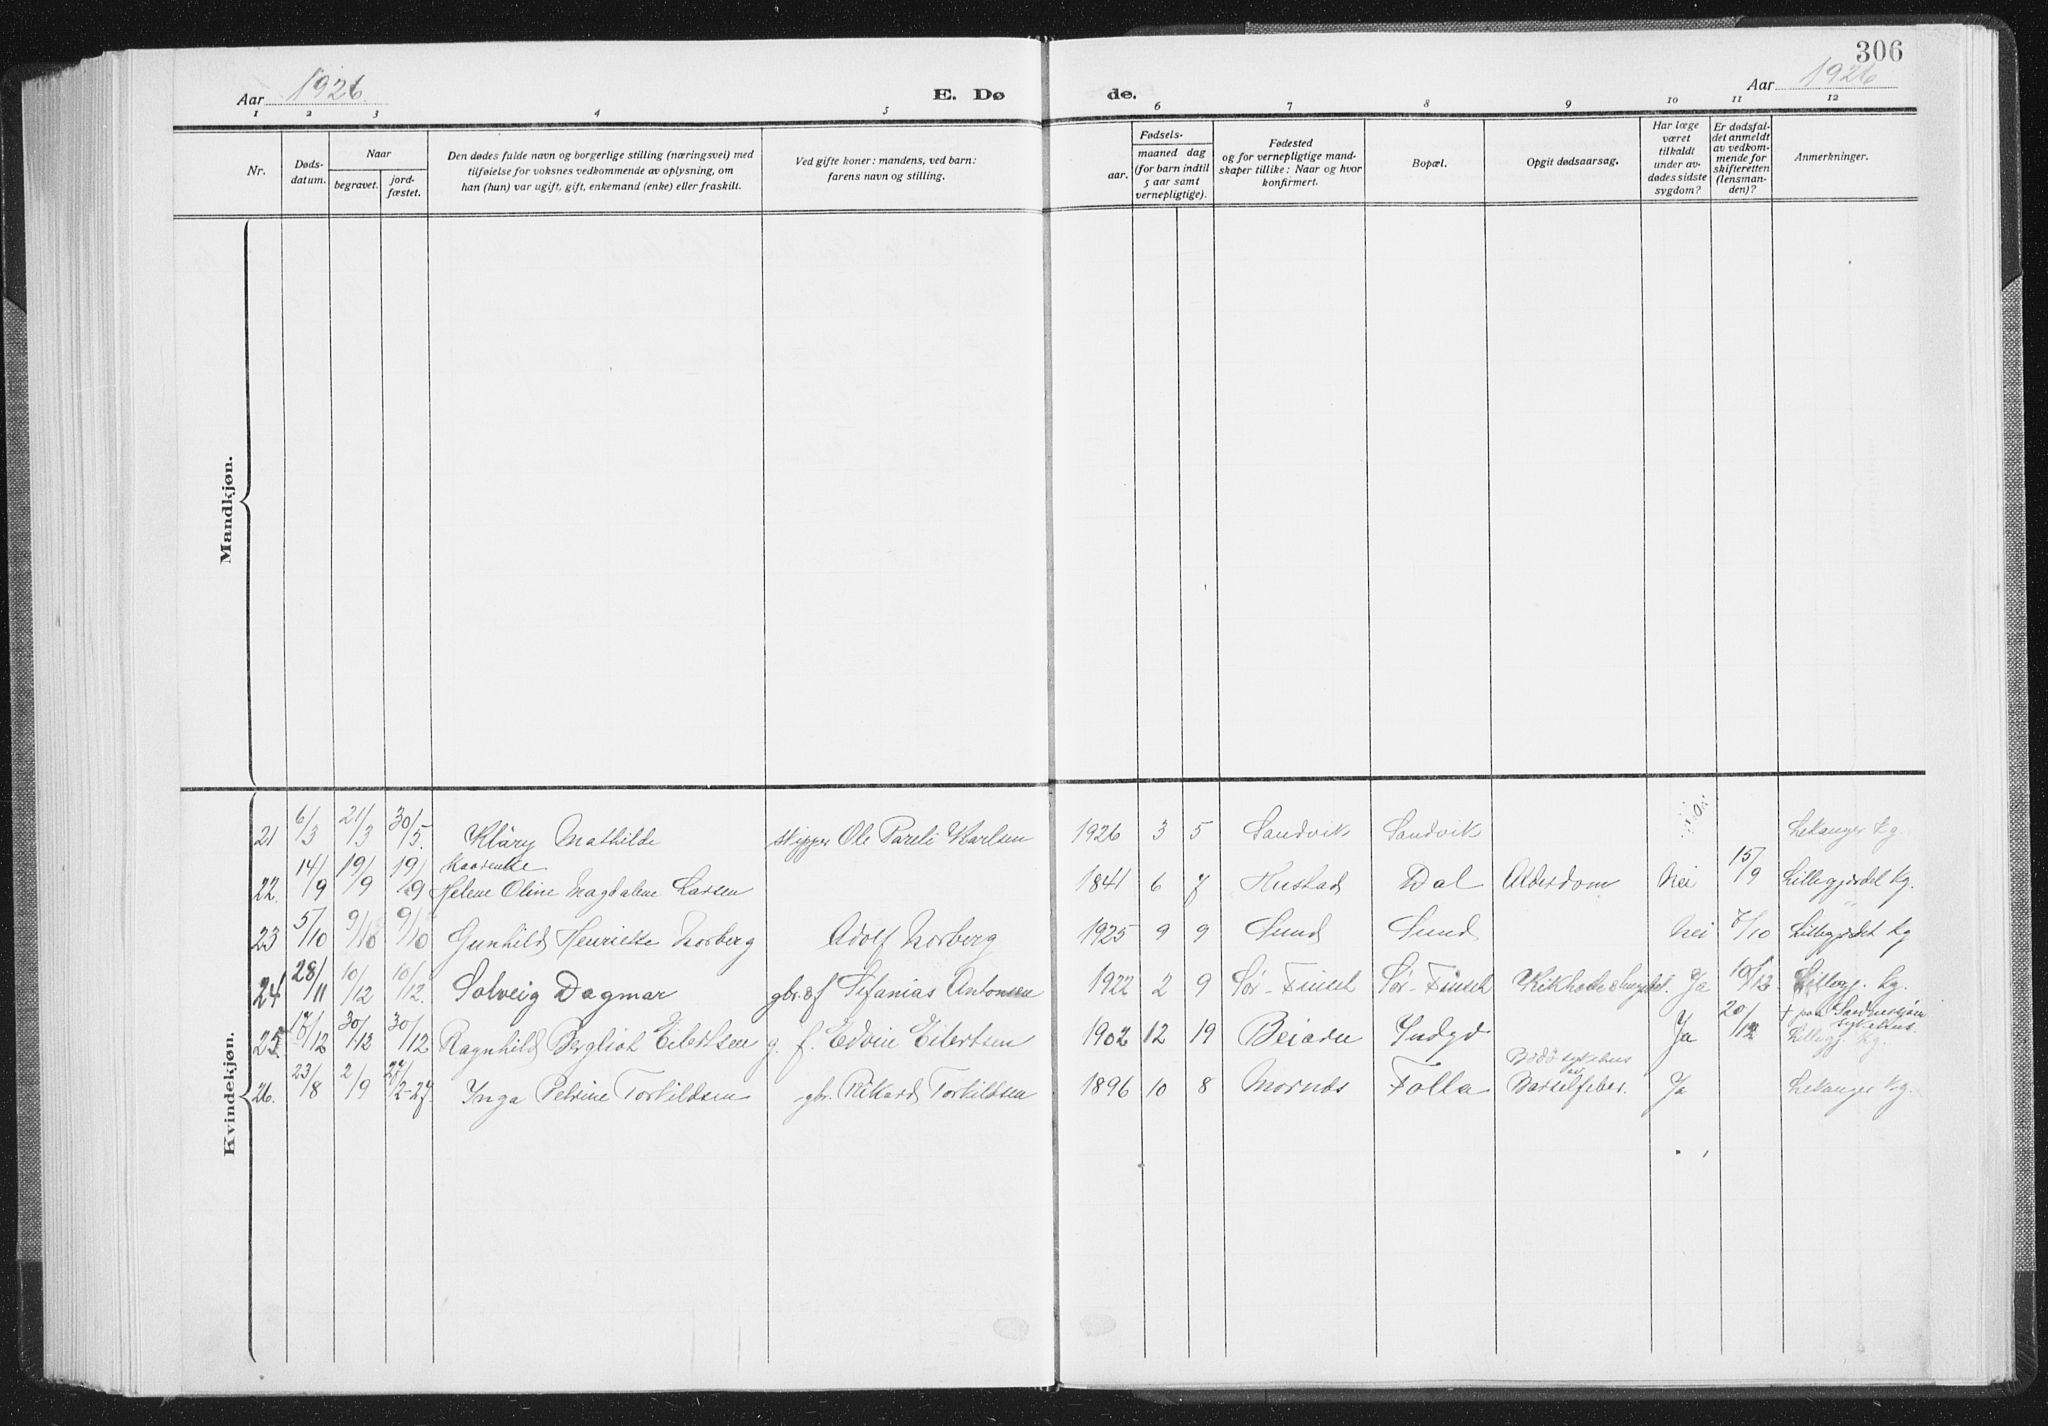 306
Aar 1926.
E. Dø
de.
Aar 1926
1 2 3 4 5 6 7 8 9 10 11 12
Nr.
Døds-
datum.
Naar
begravet.
jord-
fæstet.
Den dødes fulde navn og borgerlige stilling (næringsvei) med
tilføielse for voksnes vedkommende av oplysning, om
han (hun) var ugift, gift, enkemand (enke) eller fraskilt.
Ved gifte koner: mandens, ved barn:
farens navn og stilling.
Fødsels-
aar.
maaned dag
(for barn indtil
5 aar samt
vernepligtige).
Fødested
og for vernepligtige mand-
skaper tillike: Naar og hvor
konfirmert.
Bopæl.
Opgit dødsaarsag.
Har læge
været
tilkaldt
under av-
dødes sidste
sygdom?
Er dødsfal-
det anmeldt
av vedkom-
mende for
skifteretten
(lensman-
den)?
Anmerkninger.
Mandkjøn.
Kvindekjøn.
21 6/3 21/3 30/5. Kläry Mathilde skipper Ole Pareli Karlsen 1926 3 5 Sandvik Sandvik Lekanger kg.
Kaarenke
22. 14/9 19/9 19/9 Helene Oline Magdalene Larsen 1841 6 7 Hustad Dal Alderdom Nei 15/9 Lillegjærdet kg.
23 5/10 9/10 9/10 Gunhild Henrikke Norberg Adolf Norberg 1925 9 9 Sund Sund Nei 7/10 Lillegjærdet kg
24 28/11 10/12 10/12. Solveig Dagmar gbr. Sefanias Antonsen 1922 2 9 Sør-Finset Sør-Finset Kikhoste Ja 10/12 Lillegj. kg.
25. 17/12 30/12 30/12 Ragnhild Bergliot Eilertsen g. f. Edvin Eilertsen 1902 12 19 Beiarn Indgd Ja 20/12 + paa Sandnessjøen
sykehus.
Lillegj. kg.
Bodø sykehus
av
26. 23/8 2/9 27/2-27 Inga Petrine Torkildsen gbr. Rikard Torkildsen 1896 10 8 Mornes Folla Barselfeber. Ja Lekanger kg.